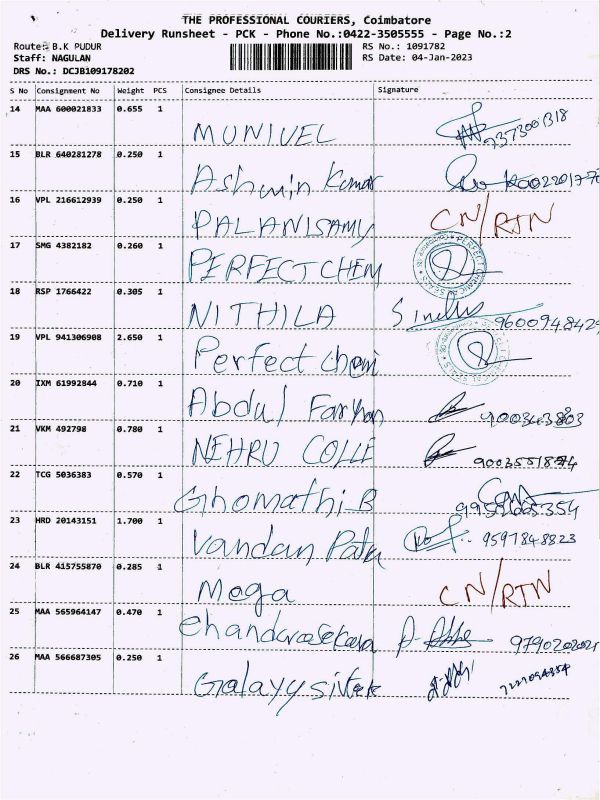 THE PROFESSIONAL COURIERS, Coimbatore
Delivery Runsheet - PCK - Phone No.:0422-3505555 - Page No.:2
Route: B.K PUDUR RS No.: 1091782
Staff: NAGULAN RS Date: 04-Jan-2023
DRS No.: DCJB109178202
S No Consignment No Weight PCS Consignee Details Signature
14 MAA 600021833 0.655 1 MUNIVEL
15 BLR 640281278 0.250 1 Ashwin Kumar
16 VPL 216612939 0.250 1 PALANISAMY CN/RTN
17 SMG 4382182 0.260 1 PERFECT CHEM
18 RSP 1766422 0.305 1 NITHILA 9600948429
19 VPL 941306908 2.650 1 Perfect chemi
20 IXM 61992844 0.710 1 Abdul Farhan
21 VKM 492798 0.780 1 NEHRU COLLE
22 TCG 5036383 0.570 1 Ghomathi B
23 HRD 20143151 1.700 1 Vandan Patel 9597848823
24 BLR 415755870 0.285 1 Moga CN/RTN
25 MAA 565964147 0.470 1 Chandrasekara
26 MAA 566687305 0.250 1